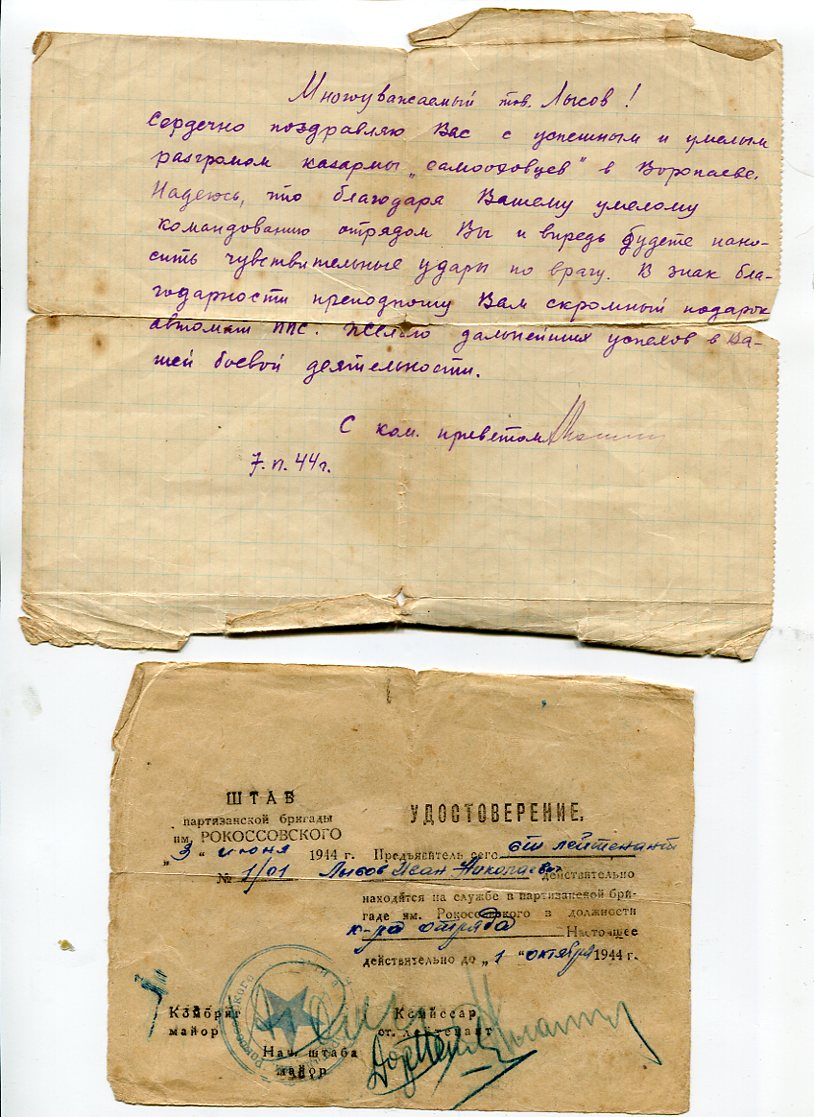 Многоуважаемый тов. Лысов!
Сердечно поздравляю Вас с успешным и умелым
разгромом казармы „самооховцев" в Воропаеве.
Надеюсь, что благодаря Вашему умелому
командованию отрядом Вы и впредь будете нано-
сить чувствительные удары по врагу. В знак бла-
годарности преподношу Вам скромный подарок
автомат ППС. Желаю дальнейших успехов в Ва-
шей боевой деятельности.
С ком. приветом
7.VI.44г.
ШТАБ
партизанской бригады
им. РОКОССОВСКОГО
„3" июня 1944 г.
№ 1/01
УДОСТОВЕРЕНИЕ.
Предъявитель сего ст. лейтенант
Лысов Иван Николаевич действительно
находится на службе в партизанской бри-
гаде им. Рокоссовского в должности
к-ра отряда Настоящее
действительно до „1" октября 1944 г.
Комбриг
майор
Комиссар
ст. лейтенант
Нач. штаба
майор